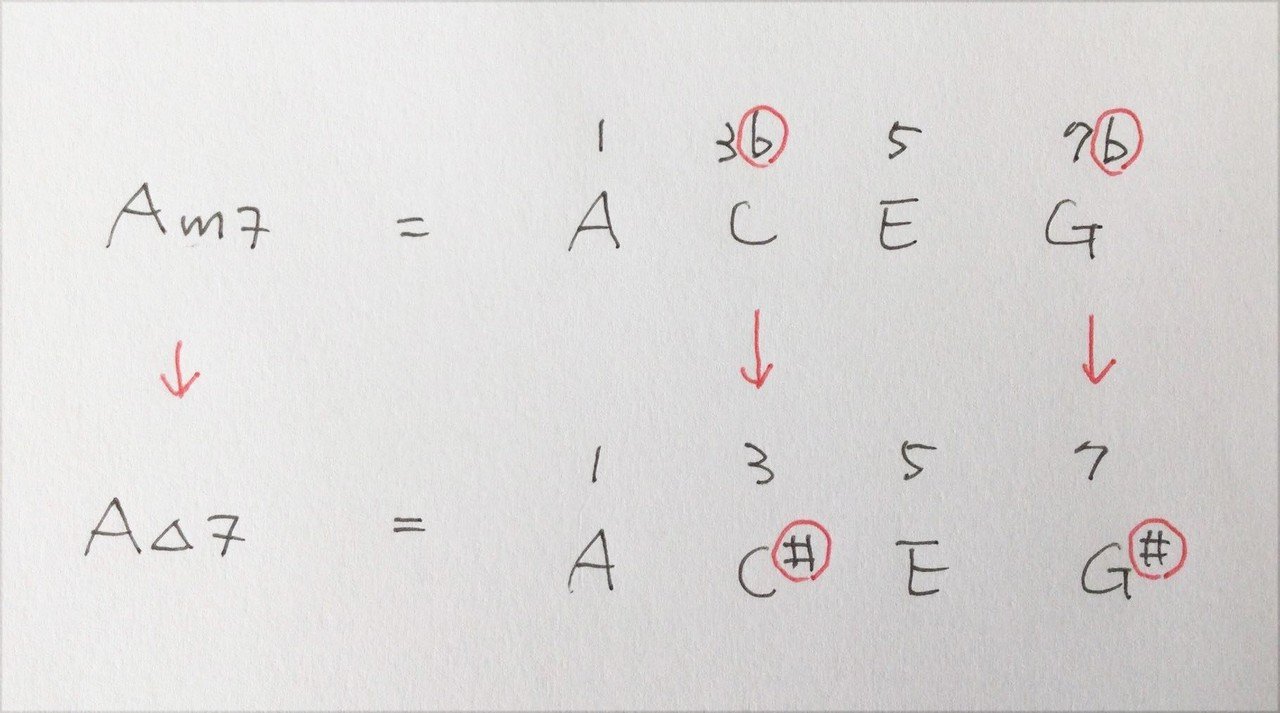 1 3b 5 7b
Am7 = A C E G
↓ ↓ ↓
1 3 5 7
A△7 = A C# E G#